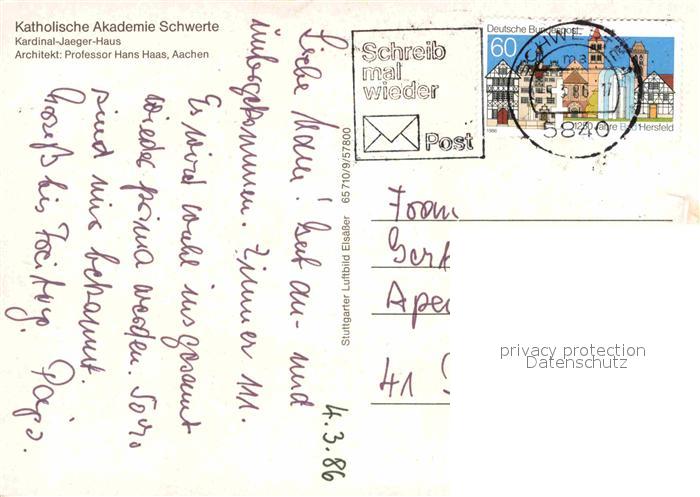 Katholische Akademie Schwerte
Kardinal-Jaeger-Haus
Architekt: Professor Hans Haas, Aachen
Liebe Mami! Gut an- und
Zimmer 111.
Es wird wohl insgesamt
wieder prima werden.
sind mir bekannt.
bis Freitag.
Papi.
4.3.86
Stuttgarter Luftbild Elsäßer 65710/9/57800
Schreib
mal
wieder
Post
Deutsche Bundespost
60
1250 Jahre Bad Hersfeld
1986
SCHWERTE
5840
Frau
41
privacy protection
Datenschutz